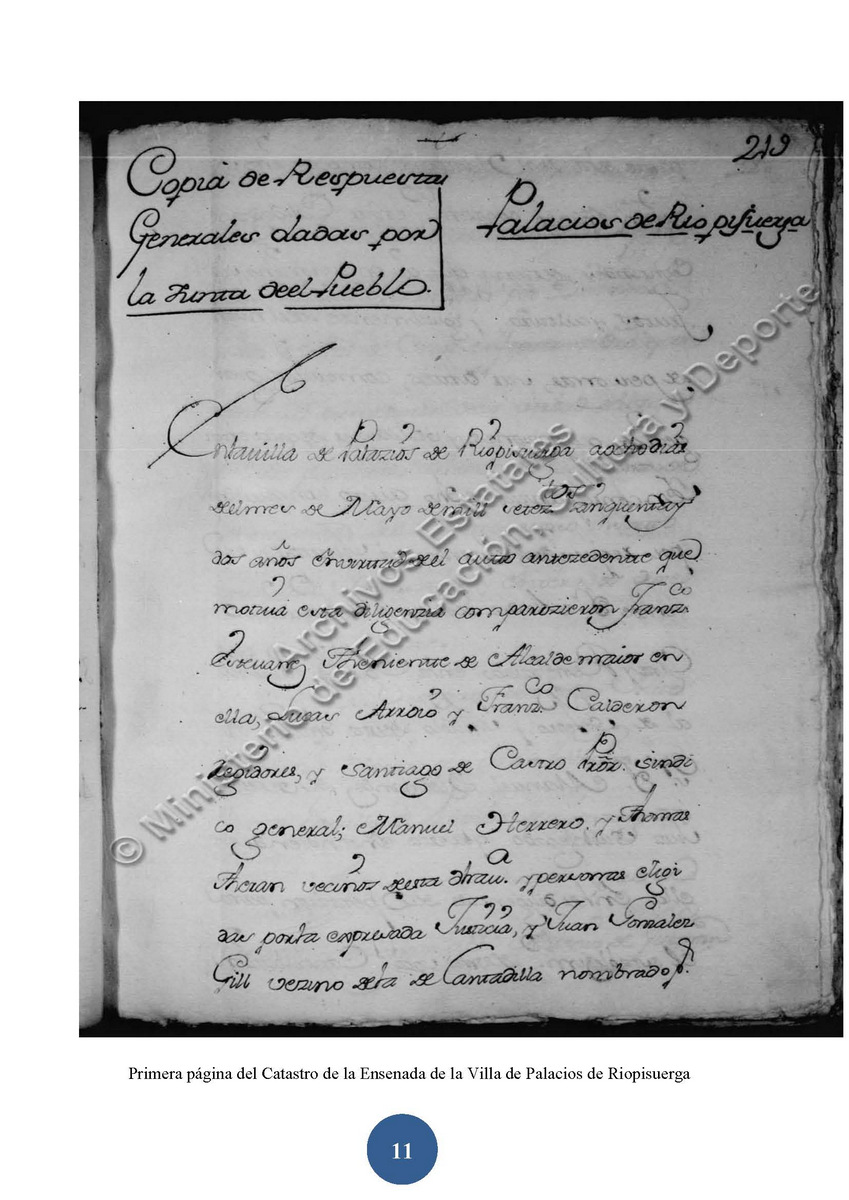 219
Copia de Respuestas
Generales dadas por
la Junta deel Pueblo.
Palacios de Riopisuerga
En la villa de Palazios de Riopisuerga a ocho dias
del mes de Mayo de mill setezos. zinquenta y
dos años en virttud del autto antezedente que
motiua esta diligenzia comparezieron Franzco.
Esteuanez Theniente de Alcalde maior en
ella, Lucas Arroio y Franzco. Calderon
Regidores, y Santiago de Castro Pror. sindi
co general; Manuel Herrero y Thomas
Theran vecinos de esta dha va. y personas elegi
das por la expresada Justicia, y Juan Gonzalez
Gill vezino de la de Cantadilla nombrado pr.
© Ministerio de Educación, Cultura y Deporte
Archivos Estatales
Primera página del Catastro de la Ensenada de la Villa de Palacios de Riopisuerga
11